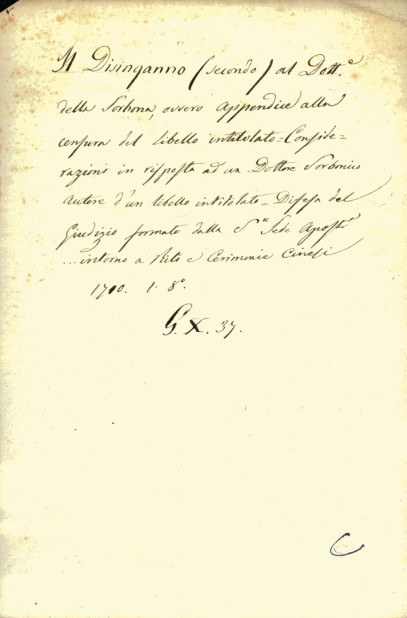 Il Disinganno (secondo) al Dott.e
della Sorbona, ovvero appendice alla
censura del libello intitolato=Conside=
razioni in risposta ad un Dottore Sorbonico
autore d'un libello intitolato=Difesa del
Giudizio formato dalla S.ta Sede Apost.a
...intorno a Riti e Cerimonie Cinesi
1710. 1. 8°.
G. X. 37.
C